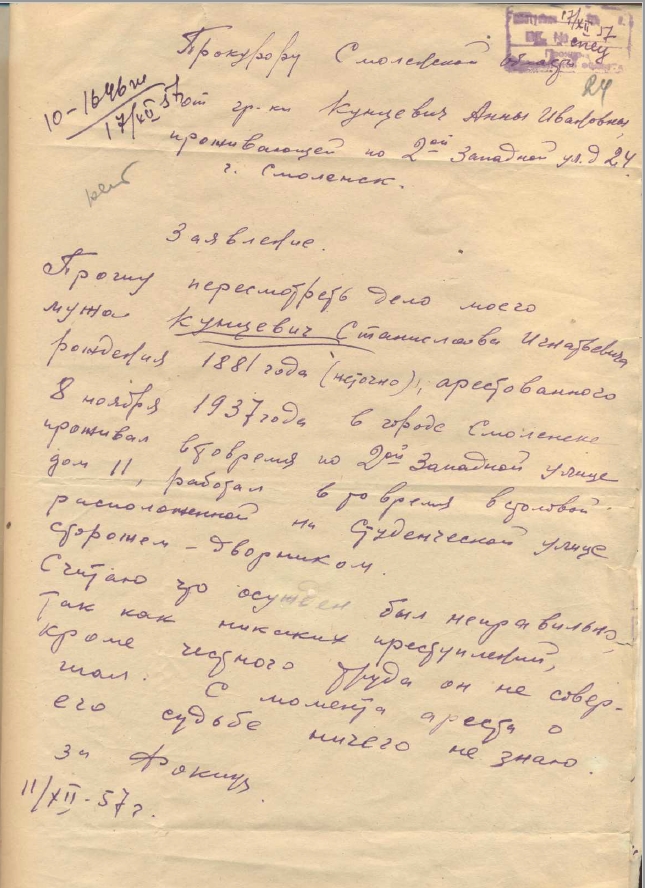 17/XII 57
спец
24
Прокурору Смоленской области
10-1646ж
17/XII 57
от гр-ки Кунцевич Анны Ивановны,
проживающей по 2ой Западной ул. д 24.
г. Смоленск.
Заявление.
Прошу пересмотреть дело моего
мужа Кунцевич Станислава Игнатьевича
рождения 1881 года (неточно), арестованного
8 ноября 1937 года в городе Смоленске
проживал в то время по 2ой Западной улице
дом 11, работал в то время в столовой
расположенной на Студенческой улице
сторожем - дворником.
Считаю что осужден был неправильно,
так как никаких преступлений,
кроме честного труда он не совер-
шал. С момента ареста о
его судьбе ничего не знаю.
за
11/XII-57 г.